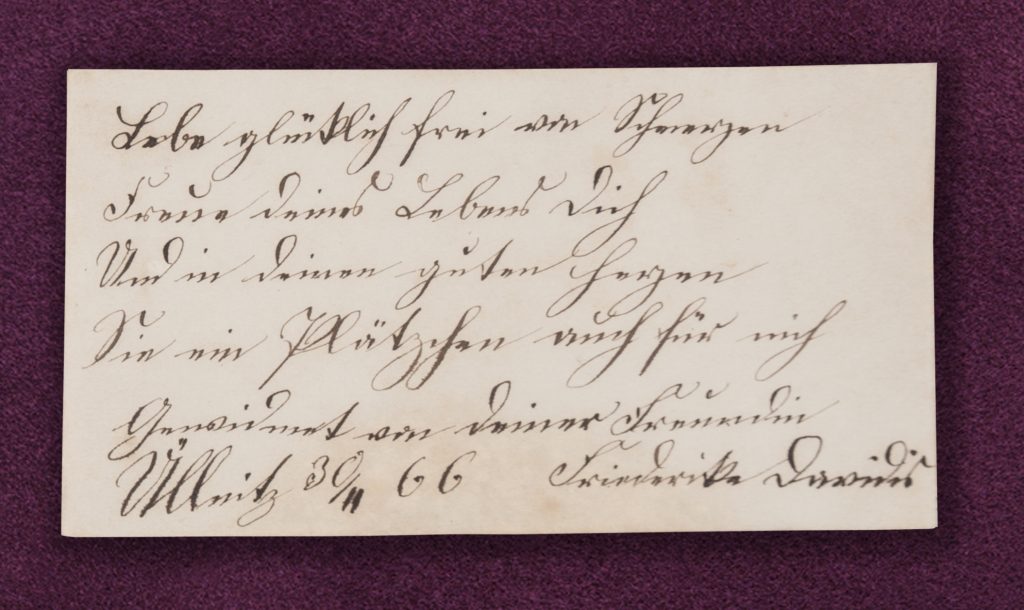 Lebe glücklich frei von Schmerzen
Freue deines Lebens Dich
Und in deinen guten Herzen
Sie ein Plätzchen auch für mich
Gewidmet von deiner Freundin
Üllnitz 30/11 66 Friederike Davidis